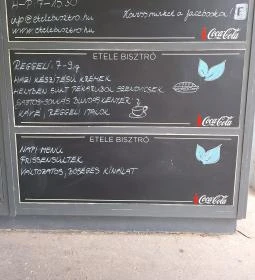 H-P: 7-15³⁰
vip@etelebisztro.hu
www.etelebisztro.hu
Kövess minket a facebookon! f
Coca-Cola
ETELE BISZTRÓ
REGGELI: 7-9-ig
HÁZI KÉSZÍTÉSŰ KRÉMEK
HELYBEN SÜLT PÉKÁRUBÓL SZENDVICSEK
KÁVÉ, REGGELI ITALOK
Coca-Cola
ETELE BISZTRÓ
NAPI MENÜ
FRISSENSÜLTEK
VÁLTOZATOS, BŐSÉGES KÍNÁLAT
Coca-Cola